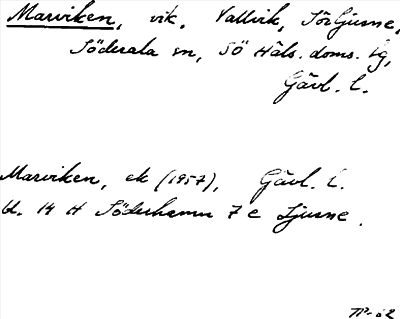 Marviken, vik, Vallvik, Sörljusne,
Söderala sn, SÖ Häls. doms. lg,
Gävl. l.
Marviken, ek (1957), Gävl. l.
bl. 14 H Söderhamn 7 e Ljusne.